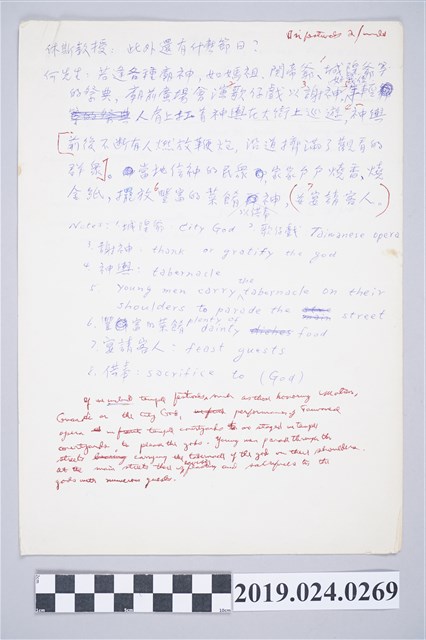 休斯教授：此外還有什麼節日？
何先生：若逢各種廟神，如媽祖、關帝爺、城隍爺等
的祭典，廟前廣場會演歌仔戲以謝神，年輕
人肩上扛着神輿在大街上巡遊，神輿
[前後不斷有人燃放鞭炮，沿途擠滿了觀看的
群衆]。當地信神的民衆，家家戶戶燒香，燒
金紙，擺放豐富的菜餚神，(宴請客人。)
以供奉
Notes: 1城隍爺: City God 2 歌仔戲: Taiwanese opera
3 謝神: thank or gratify the god
4 神輿: tabernacle
5. young men carry the tabernacle on their
shoulders to parade the street
6. 豐富的菜餚 plenty of dainty food
7. 宴請客人: feast guests
8. 供奉: sacrifice to (God)
temple festivals, such as those honoring
or the City God, performances of Taiwanese
opera in temple courtyards or staged in temple
courtyards to please the gods. Young men parade through the
streets carrying the tabernacle of the god on their shoulders.
the main streets and sacrifices to the
gods with numerous guests.
2019.024.0269